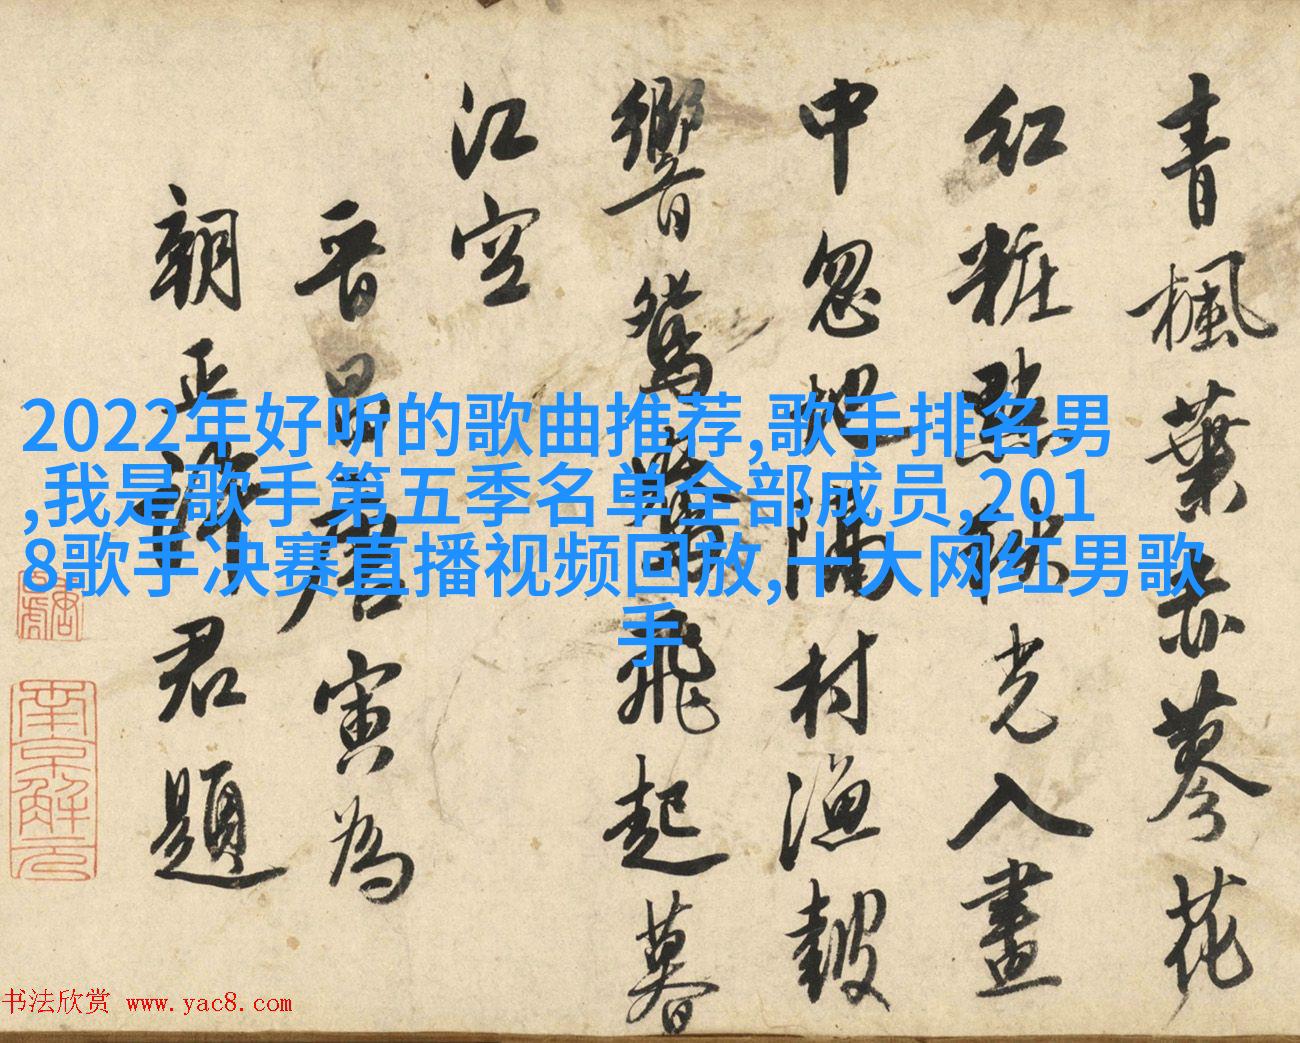 青楓葉赤蓼花
紅粧點秋光入畫
中忽地隔村漁皷
響鴛鴦飛起暮
江空
晋昌唐寅為
朝正君題
南京解元
2022年好听的歌曲推荐,歌手排名男
,我是歌手第五季名单全部成员,201
8歌手决赛直播视频回放,十大网红男歌
手
书法欣赏 www.yac8.com